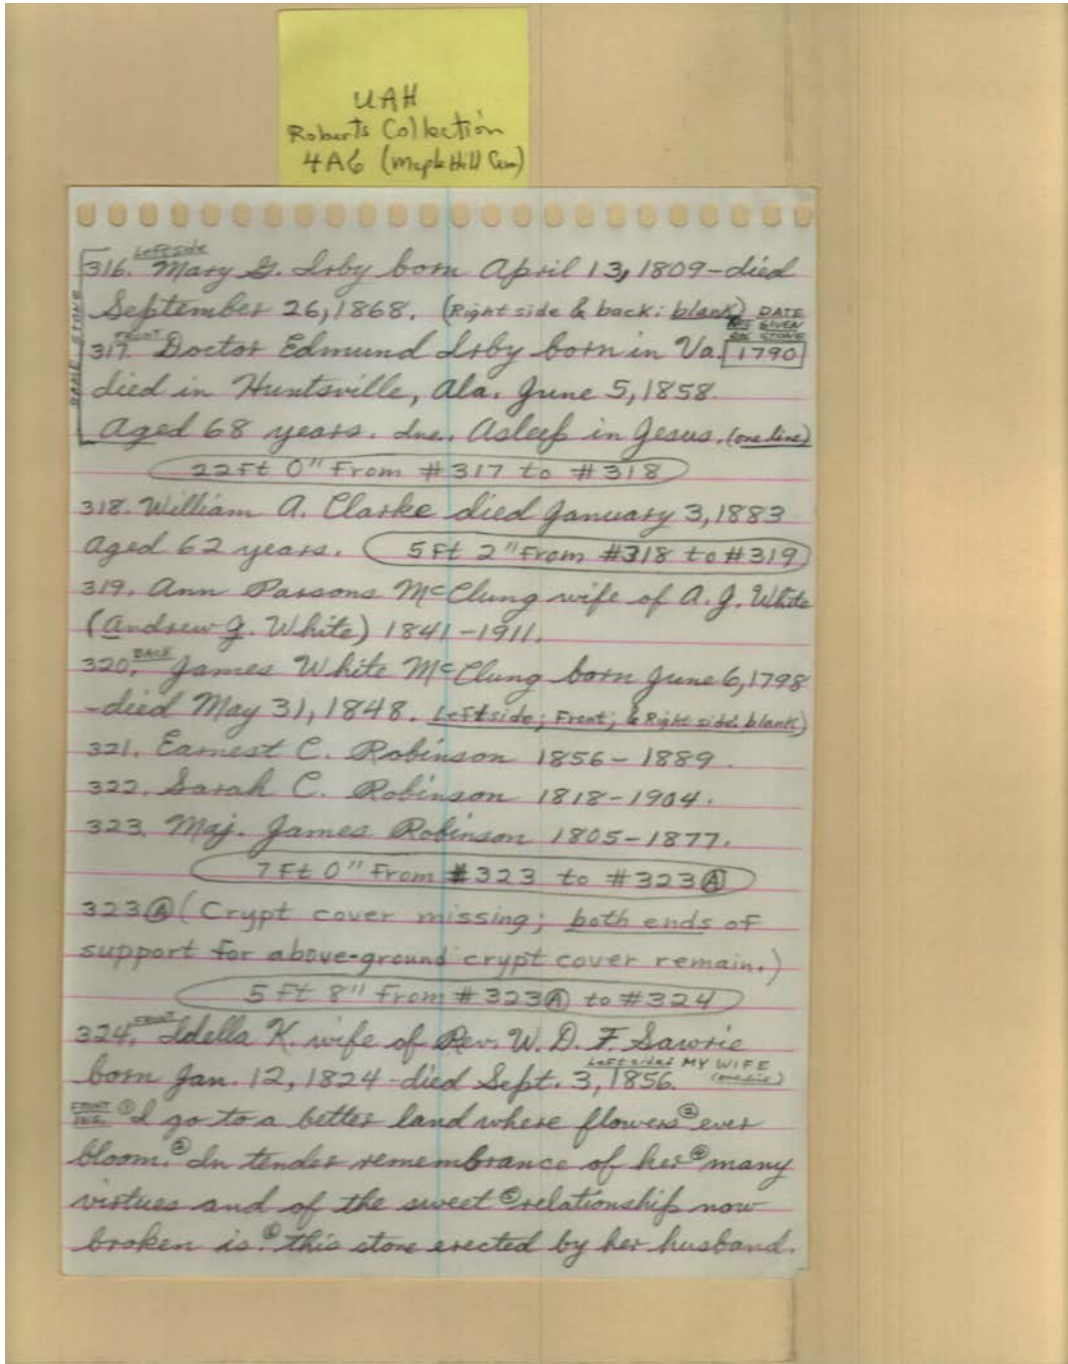 UAH
Roberts Collection
4A6 (Maple Hill Cem)
Left side
316. Mary G. Irby born April 13, 1809-died
September 26, 1868. (Right side & back: blank)
SAME STONE
DATE
AS GIVEN
ON STONE
317. FRONT Doctor Edmund Irby born in Va. 1790
died in Huntsville, Ala. June 5, 1858.
Aged 68 years. Ins. Asleep in Jesus. (one line)
22 Ft 0" From #317 to #318
318. William A. Clarke died January 3, 1883
Aged 62 years. 5 Ft 2" From #318 to #319
319. Ann Parsons McClung wife of A. J. White
(Andrew J. White) 1841-1911.
320. BACK James White McClung born June 6, 1798
-died May 31, 1848. Left side; Front; & Right side: blank)
321. Earnest C. Robinson 1856-1889.
322. Sarah C. Robinson 1818-1904.
323. Maj. James Robinson 1805-1877.
7 Ft 0" From #323 to #323Ⓐ
323Ⓐ (Crypt cover missing; both ends of
support for above-ground crypt cover remain.)
5 Ft 8" From #323Ⓐ to #324
324. FRONT Idella K. wife of Rev. W. D. F. Sawrie
Left side: MY WIFE
born Jan. 12, 1824-died Sept. 3, 1856. (one line)
FRONT INS. ① I go to a better land where flowers ② ever
bloom. ③ In tender remembrance of her ④ many
virtues and of the sweet ⑤ relationship now
broken is ⑥ this stone erected by her husband.